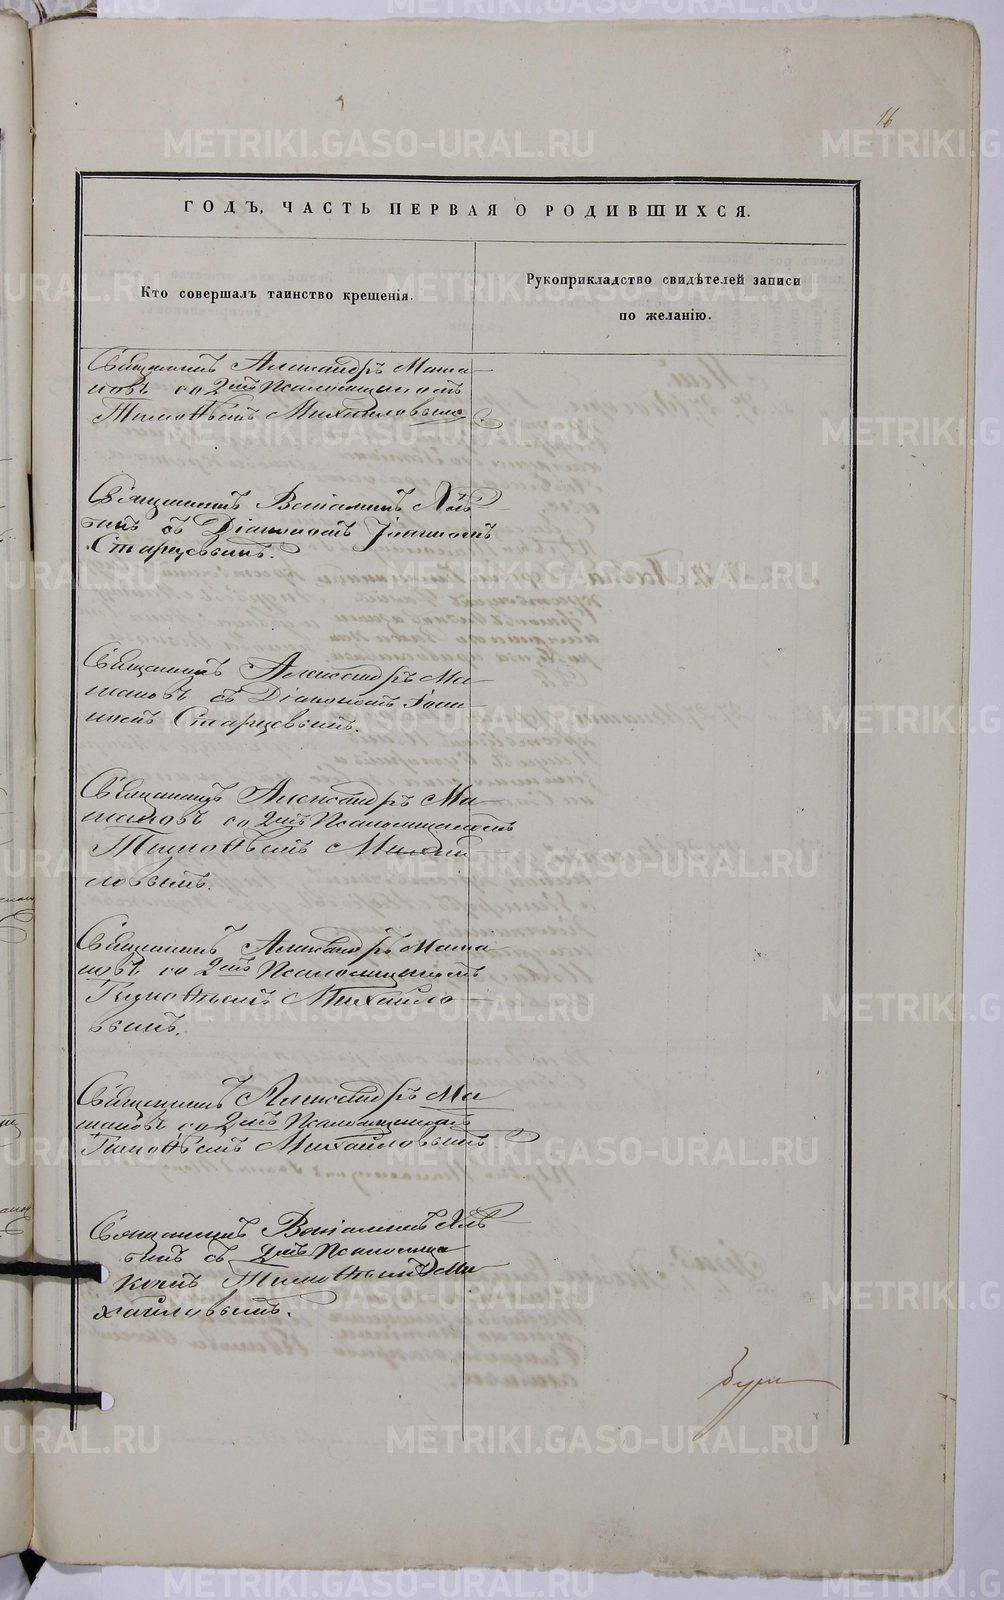 16
ГОДЪ, ЧАСТЬ ПЕРВАЯ О РОДИВШИХСЯ.
Кто совершалъ таинство крещенія.
Рукоприкладство свидѣтелей записи
по желанію.
Священникъ Александръ Мама
новъ со 2мъ Псаломщикомъ
Тимоѳеемъ Михайловымъ.
Священникъ Веніаминъ Хлѣ
бинъ съ Діакономъ Іоанномъ
Старцевымъ.
Священникъ Александръ Ма
мановъ съ Діакономъ Іоан
номъ Старцевымъ.
Священникъ Александръ Ма
мановъ со 2мъ Псаломщикомъ
Тимоѳеемъ Михай
ловымъ.
Священникъ Александръ Мама
новъ со 2мъ Псаломщикомъ
Тимоѳеемъ Михайло
вымъ.
Священникъ Александръ Ма
мановъ со 2мъ Псаломщикомъ
Тимоѳеемъ Михайловымъ
Священникъ Веніаминъ Хлѣ
бинъ съ 2мъ Псаломщи
комъ Тимоѳеемъ Ми
хайловымъ.
METRIKI.GASO-URAL.RU